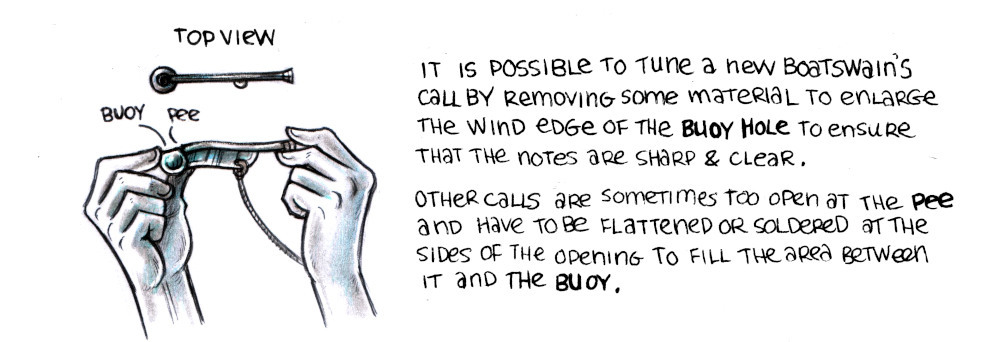 TOP VIEW
BUOY Pee
IT IS POSSIBLE TO TUNE A NEW BOATSWAIN'S
CALL BY REMOVING SOME MATERIAL TO ENLARGE
THE WIND EDGE OF THE BUOY HOLE TO ENSURE
THAT THE NOTES ARE SHARP & CLEAR.
OTHER CALLS ARE SOMETIMES TOO OPEN AT THE PEE
AND HAVE TO BE FLATTENED OR SOLDERED AT THE
SIDES OF THE OPENING TO FILL THE AREA BETWEEN
IT AND THE BUOY.